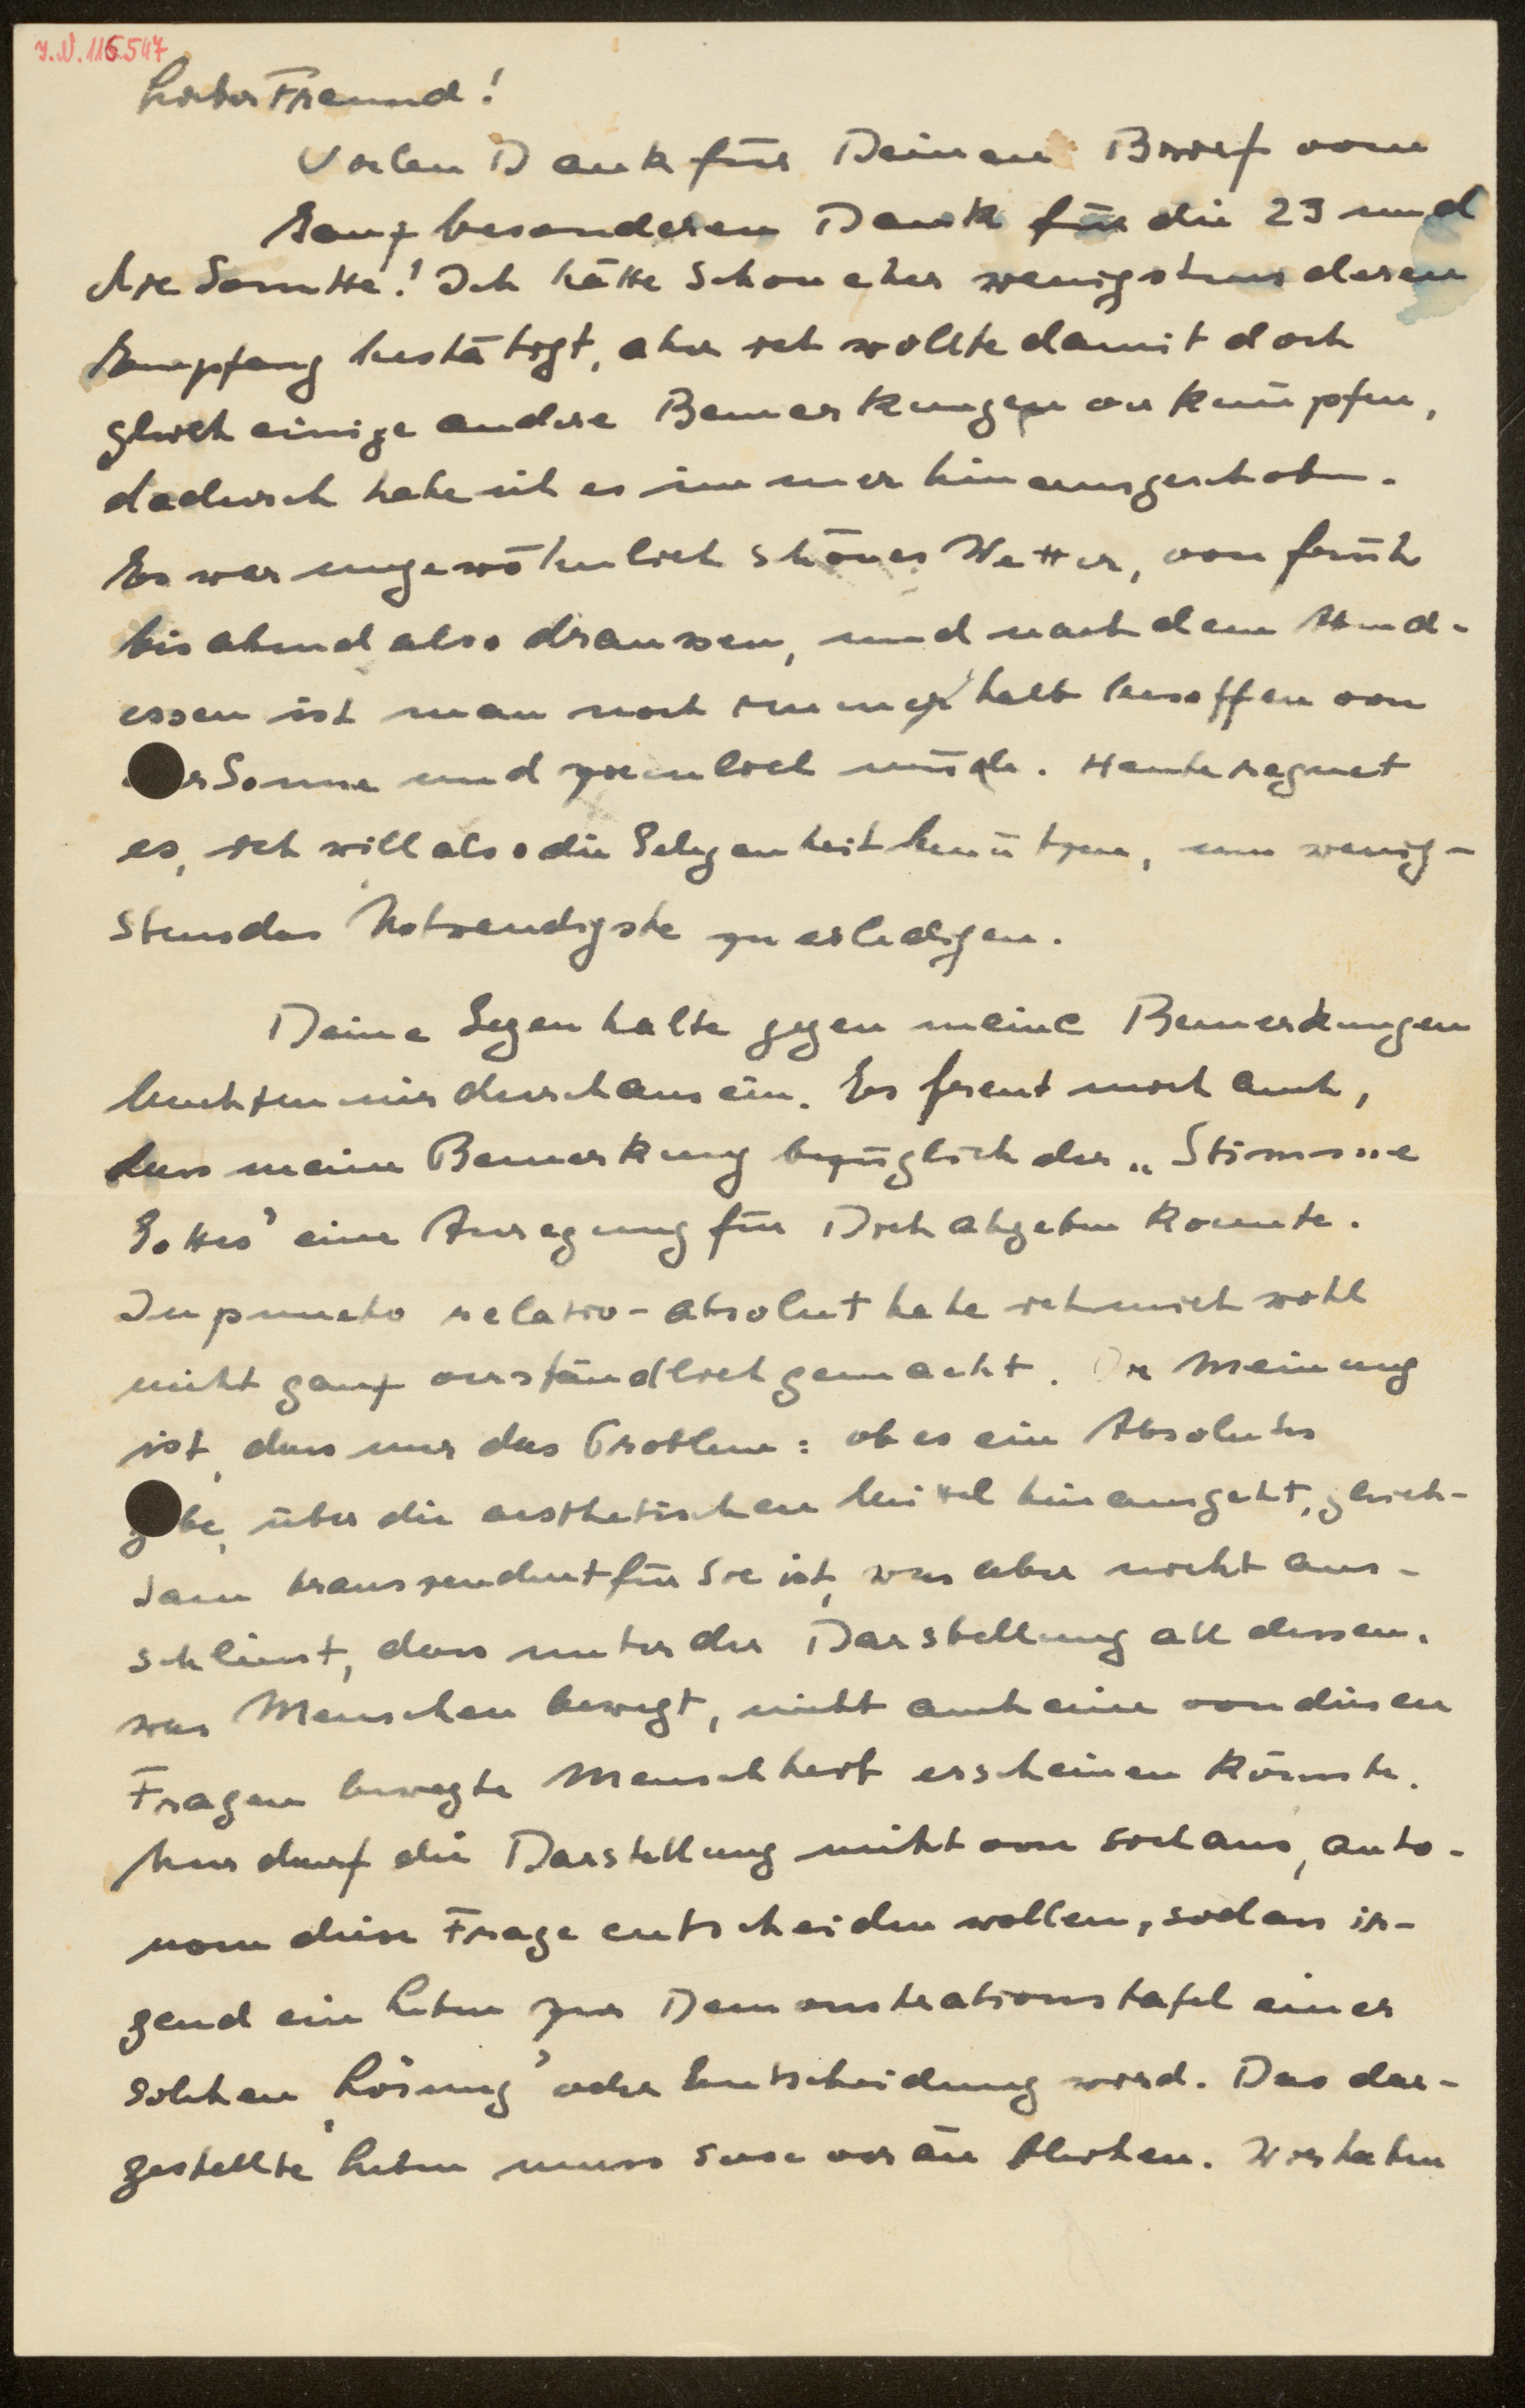 J.N. 116.547
Lieber Freund!
Vielen Dank für Deinen Brief vom
Ganz besonderen Dank für die 23 und
die Sonette! Ich hätte schon eher wenigstens deren
Empfang bestätigt, aber ich wollte damit doch
gleich einige andere Bemerkungen anknüpfen,
dadurch habe ich es immer hinausgeschoben.
Es war ungewöhnlich schönes Wetter, von früh
bis abend also draussen, und nach dem Abend-
essen ist man noch immer halb besoffen von
der Sonne und ziemlich müde. Heute regnet
es, ich will also die Gelegenheit benützen, um wenig-
stens das Notwendigste zu erledigen.
Deine Gegenhalte gegen meine Bemerkungen
leuchten mir durchaus ein. Es freut mich auch,
dass meine Bemerkung bezüglich der „Stimme
Gottes" eine Anregung für Dich abgeben konnte.
In puncto relativ-absolut habe ich mich wohl
nicht ganz verständlich gemacht. Die Meinung
ist, dass nur das Problem: ob es ein Absolutes
gäbe, über die aesthetischen Mittel hinausgeht, gleich-
sam transzendent für sie ist, was aber nicht aus-
schliesst, dass unter der Darstellung all dessen,
was Menschen bewegt, nicht auch eine von diesen
Fragen bewegte Menschheit erscheinen könnte.
Nur darf die Darstellung nicht von sich aus, auto-
nom diese Frage entscheiden wollen, sodass ir-
gend ein Leben zur Demonstrationstafel einer
solchen „Lösung" oder Entscheidung wird. Das dar-
gestellte Leben muss souverän bleiben. Wir haben